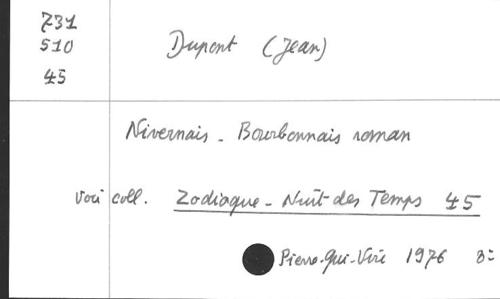 731
510
45
Dupont (Jean)
Nivernais - Bourbonnais roman
Voir coll. Zodiaque - Nuit des Temps 45
Pierre-Qui-Vire 1976 8=